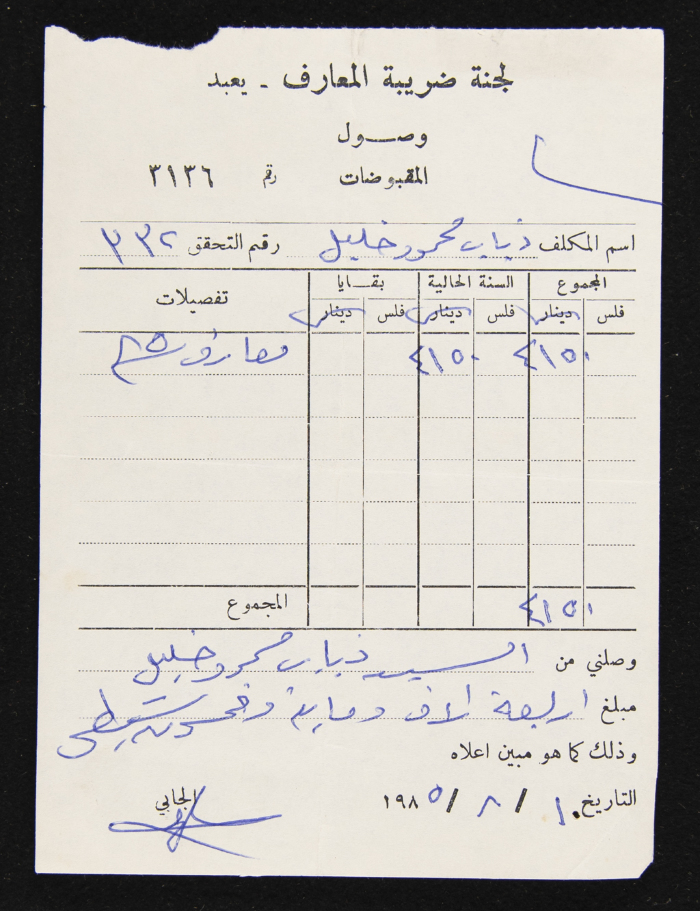 لجنة ضريبة المعارف - يعبد
وصول
المقبوضات رقم ٣١٣٦
اسم المكلف ذياب محمود خليل رقم التحقق ٣٣٢
المجموع السنة الحالية بقايا تفصيلات
فلس دينار فلس دينار فلس دينار
٤١٥٠ ٤١٥٠ معارف ٨٥
المجموع ٤١٥٠
وصلني من السيد ذياب محمود خليل
مبلغ اربعة الاف وماية وخمسون شيقل
وذلك كما هو مبين اعلاه
التاريخ ١٠ / ٨ / ١٩٨٥
الجابي